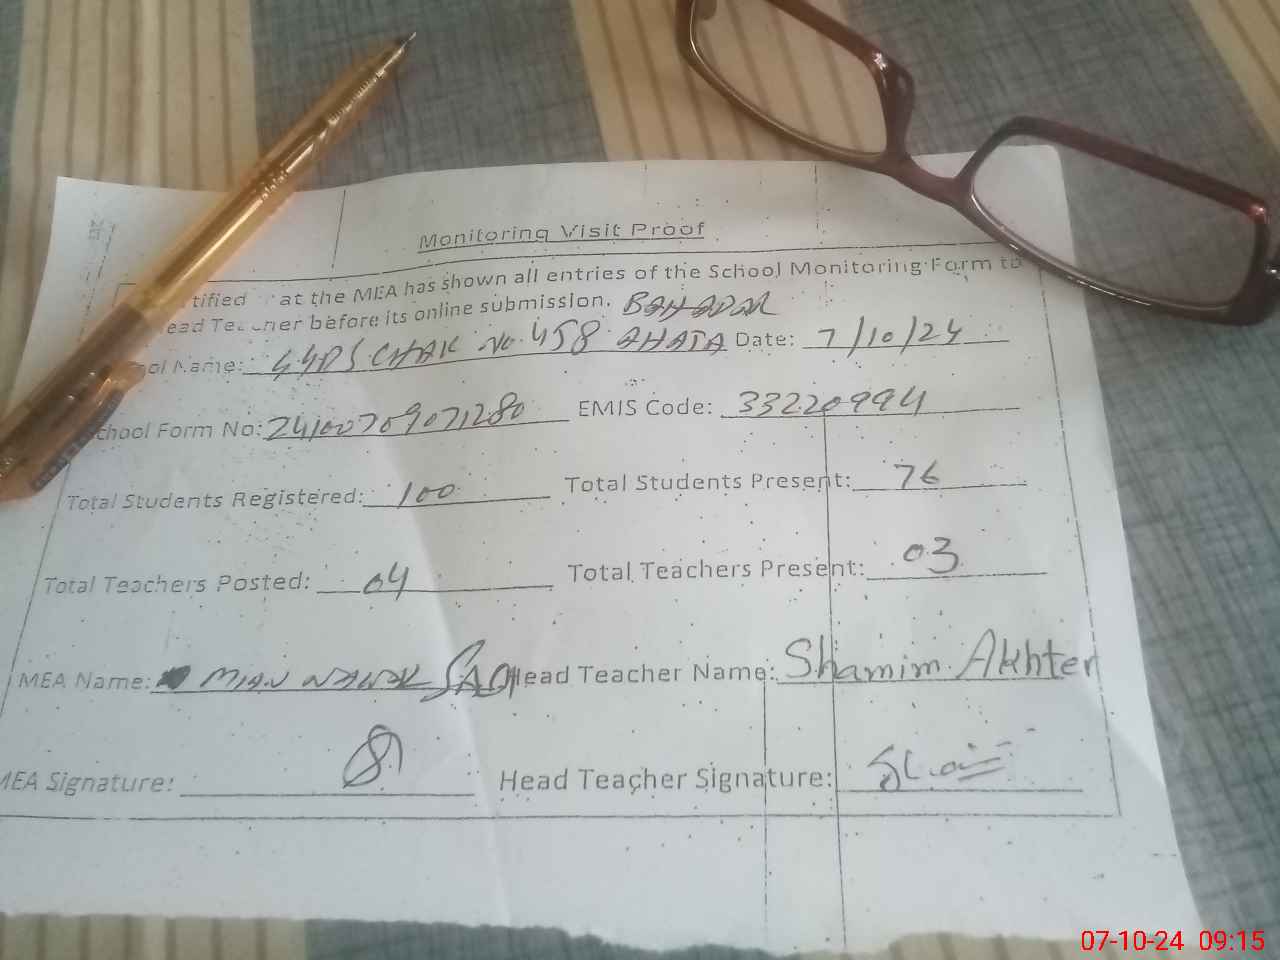 Monitoring Visit Proof
tified at the MEA has shown all entries of the School Monitoring Form to
ead Teacher before its online submission. BAHADAR
ol Name: GGPS CHAK No. 458 AHATA Date: 7/10/24
chool Form No: 24100709071280 EMIS Code: 33220994
Total Students Registered: 100 Total Students Present: 76
Total Teachers Posted: 04 Total Teachers Present: 03
MEA Name: MIAN Head Teacher Name: Shamim Akhter
MEA Signature: Head Teacher Signature:
07-10-24 09:15